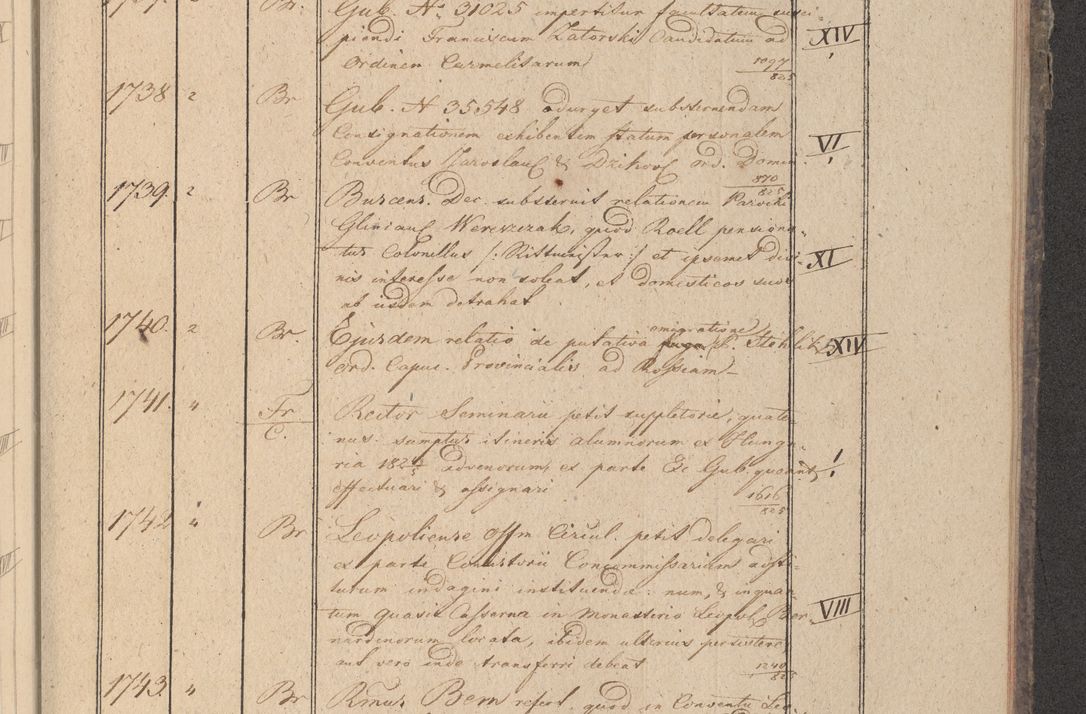 Br. Gub. No 31025 impertitur facultatem susci-
piendi Franciscum Zatorski Candidatum ad XIV
Ordinem Carmelitarum 1097/825
1738 2 Br Gub. N 35,548 adurget substernendam
Consignationem exhibentem statum personalem
Conventus Jaroslav & Dzikov Ord. Domin VI
870/825
1739. 2 Br Buscens. Dec. substernit relationem Parochi
Glinian Wereszczak, quod Roell pensiona-
tus Colonellus /: Rittmeister :/ et ipsemet divi- XI
nis interesse non soleat, et domesticos suos
ab iisdem detrahat
1740. 2 Br. Ejusdem relatio de putativa emigratione P. Stehlik XIV
Ord. Capuc. Provincialis ad Rossiam
1741. " Fr/C. Rector Seminarii petit suppletorie, quate-
nus sumptus itineris alumnorum ex Hunga-
ria 182 advenorum, ex parte Ex Gub. queant
effectuari & assignari 1616/825
1742 " Br Leopoliense Offm Circul. petit delegari
ex parte Consistorii Concommissarium adsti-
turum indagini instituendae: num, & inquan-
tum quasi Casserna in Monasterio Leopol Ber- VIII
nardinorum locata, ibidem ulterius persistere,
aut vero inde transferri debeat 1240/825
1743. " Br Rmus Bem refert, quod in Conventu Leo